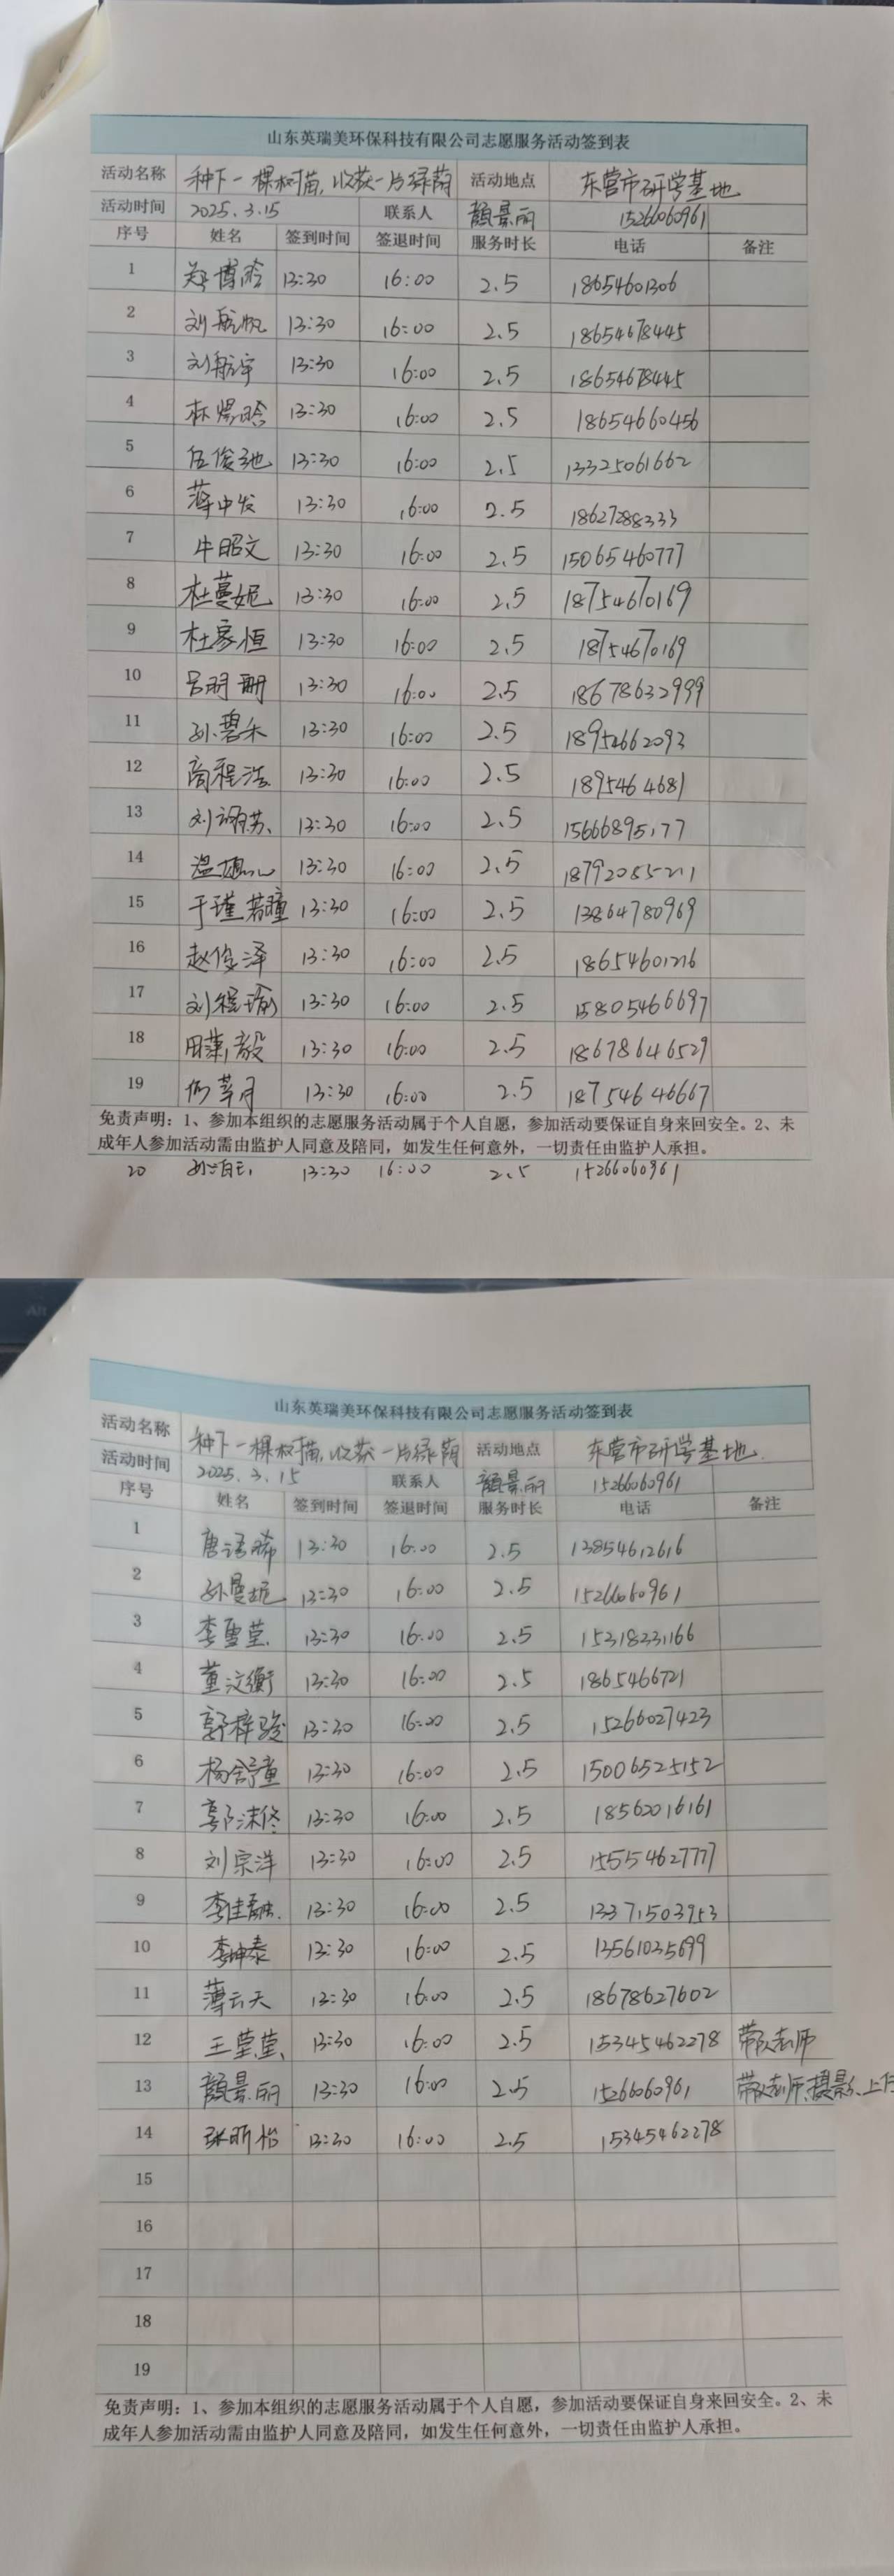 山东英瑞美环保科技有限公司志愿服务活动签到表
活动名称 种下一棵树苗,收获一片绿荫 活动地点 东营市研学基地
活动时间 2025.3.15 联系人 颜景丽 15266060961
序号 姓名 签到时间 签退时间 服务时长 电话 备注
1 郑博晗 13:30 16:00 2.5 18654601306
2 刘航帆 13:30 16:00 2.5 18654678445
3 刘航宇 13:30 16:00 2.5 18654678445
4 林煜晗 13:30 16:00 2.5 18654660456
5 伍俊驰 13:30 16:00 2.5 13325061662
6 蒋中发 13:30 16:00 2.5 18627288333
7 牛昭文 13:30 16:00 2.5 15065460777
8 杜蔓妮 13:30 16:00 2.5 18754670169
9 杜家恒 13:30 16:00 2.5 18754670169
10 吕玥珊 13:30 16:00 2.5 18678632999
11 孙碧禾 13:30 16:00 2.5 18952662093
12 商程浩 13:30 16:00 2.5 1895464681
13 刘 13:30 16:00 2.5 15666895177
14 温 13:30 16:00 2.5 18792085211
15 于瑾若瞳 13:30 16:00 2.5 13864780969
16 赵俊泽 13:30 16:00 2.5 18654601216
17 刘程瑜 13:30 16:00 2.5 15805466697
18 田 毅 13:30 16:00 2.5 18678646529
19 13:30 16:00 2.5 18754646667
免责声明:1、参加本组织的志愿服务活动属于个人自愿,参加活动要保证自身来回安全。2、未
成年人参加活动需由监护人同意及陪同,如发生任何意外,一切责任由监护人承担。
20 13:30 16:00 2.5 15266060961
山东英瑞美环保科技有限公司志愿服务活动签到表
活动名称 种下一棵树苗,收获一片绿荫 活动地点 东营市研学基地
活动时间 2025.3.15 联系人 颜景丽 15266060961
序号 姓名 签到时间 签退时间 服务时长 电话 备注
1 唐语晞 13:30 16:00 2.5 13854612616
2 孙曼妮 13:30 16:00 2.5 15266060961
3 李雪莹 13:30 16:00 2.5 15318331166
4 董汶衡 13:30 16:00 2.5 1865466721
5 郭梓骏 13:30 16:00 2.5 15266027423
6 杨舒童 13:30 16:00 2.5 15006525152
7 郭沫佟 13:30 16:00 2.5 18562016161
8 刘宗洋 13:30 16:00 2.5 15554627777
9 李佳融 13:30 16:00 2.5 13371503953
10 李坤泰 13:30 16:00 2.5 13561035699
11 薄云天 13:30 16:00 2.5 18678627602
12 王莹莹 13:30 16:00 2.5 15345462278 带队老师
13 颜景丽 13:30 16:00 2.5 15266060961 带队老师、摄影、上传
14 张昕怡 13:30 16:00 2.5 15345462278
15
16
17
18
19
免责声明:1、参加本组织的志愿服务活动属于个人自愿,参加活动要保证自身来回安全。2、未
成年人参加活动需由监护人同意及陪同,如发生任何意外,一切责任由监护人承担。